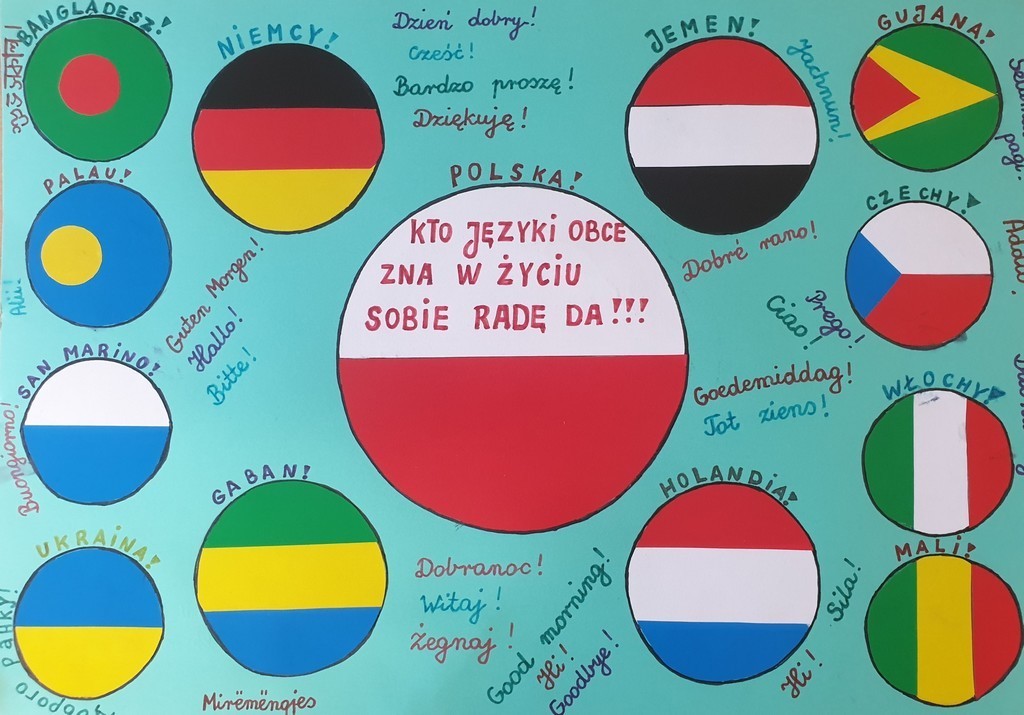 BANGLADESZ!
NIEMCY!
Dzień dobry!
Cześć!
Bardzo proszę!
Dziękuję!
JEMEN!
Jachnun!
GUJANA!
PALAU!
Alii!
Guten Morgen!
Hallo!
Bitte!
POLSKA!
KTO JĘZYKI OBCE
ZNA W ŻYCIU
SOBIE RADĘ DA!!!
Dobré rano!
CZECHY!
Prego!
Ciao!
SAN MARINO!
Buongiorno!
Goedemiddag!
Tot ziens!
WŁOCHY!
UKRAINA!
ранку!
GABAN!
Mirëmëngjes
Dobranoc!
Witaj!
Żegnaj!
Good morning!
Hi!
Goodbye!
HOLANDIA!
Hi!
Sila!
MALI!